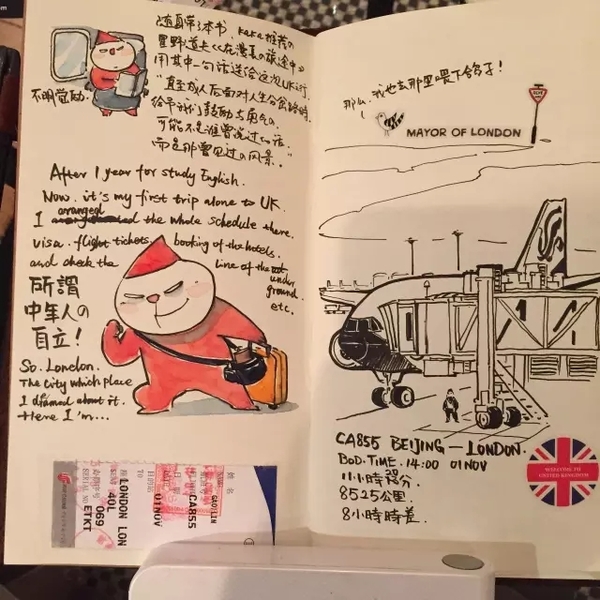 随身带了本书，kaka推荐的
星野道夫《在漫长的旅途中》
用其中一句话送给这次UK行.
"直至成人后面对人生分岔路时.
给予我们鼓励与勇气の.
可能不是谁曾说过の话.
而是那曾见过の风景。"
不明觉励.
After 1 year for study English.
Now. it's my first trip alone to UK.
I arranged the whole schedule there.
visa. flight tickets. booking of the hotels.
and check the line of the under
ground.
etc.
所謂
中年人の
自立!
So. London.
The city which place
I dreamed about it.
Here I'm...
姓名
GAO/LIN
CA855
01NOV
目的地
TO
LONDON LON
座位号
40L
069
SERIAL NO
ETKT
那么，我也去那里喂下鸽子!
MAYOR OF LONDON
CA855 BEIJING — LONDON.
BOD.TIME. 14:00 01NOV
11小時20分.
8525公里.
8小時時差.
WELCOME TO
UNITED KINGDOM